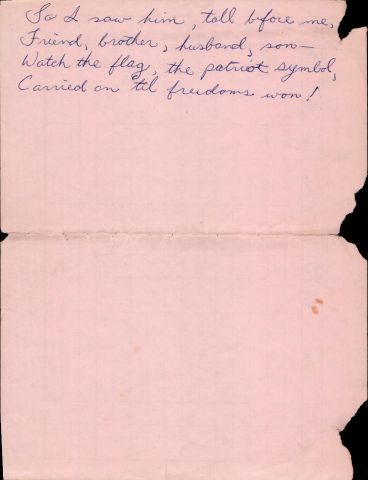 So I saw him, tall before me,
Friend, brother, husband, son—
Watch the flag, the patriot symbol,
Carried on 'til freedoms won!